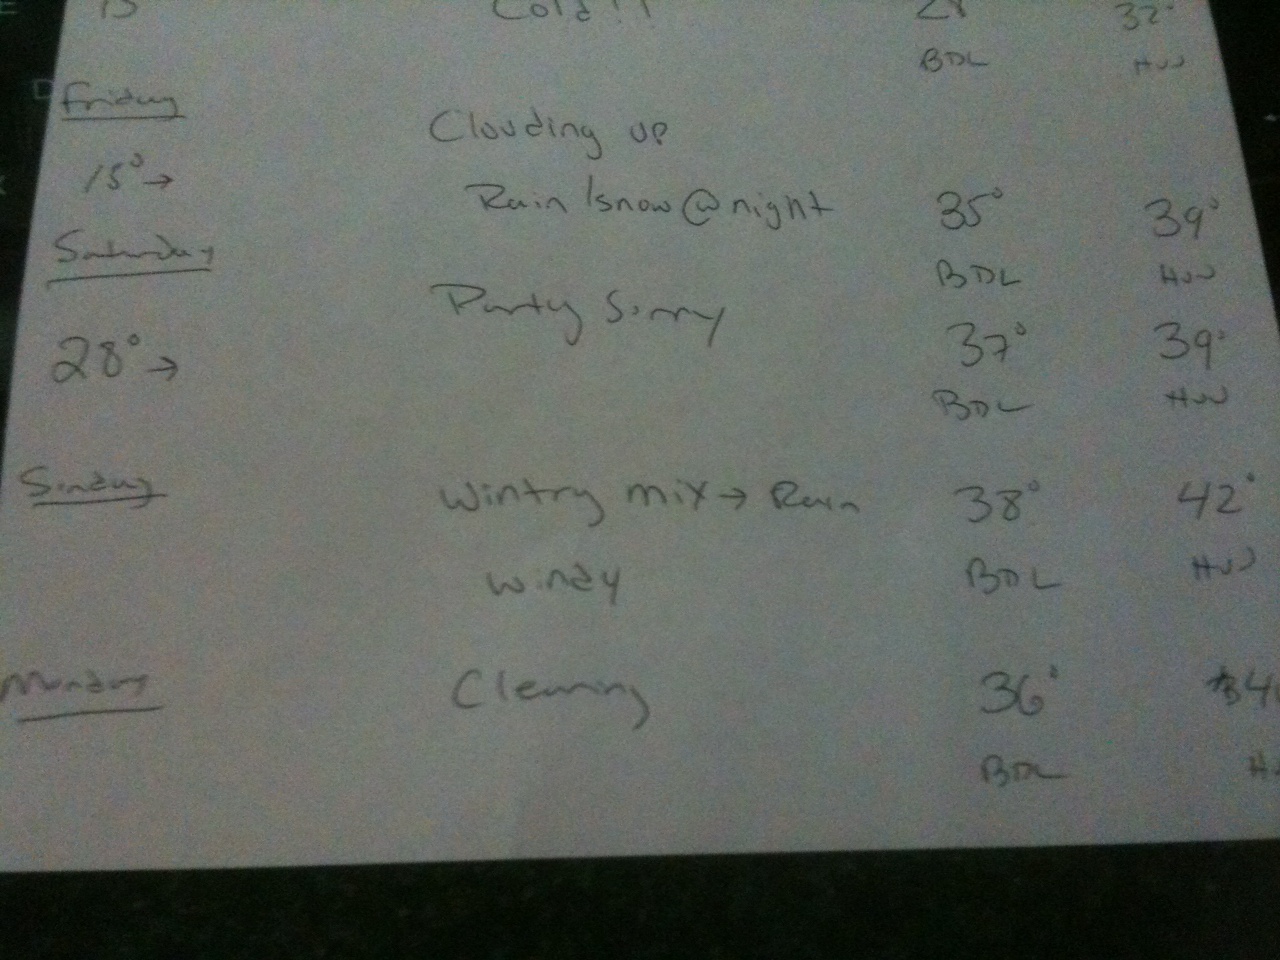 15 Cold!! 28 32°
BDL HVN
Friday
Clouding up
15° →
Rain/snow @ night 35° 39°
Saturday
BDL HVN
Party Sunny
28° → 37° 39°
BDL HVN
Sunday Wintry mix → Rain 38° 42°
Windy BDL HVN
Monday Clearing 36°
BDL